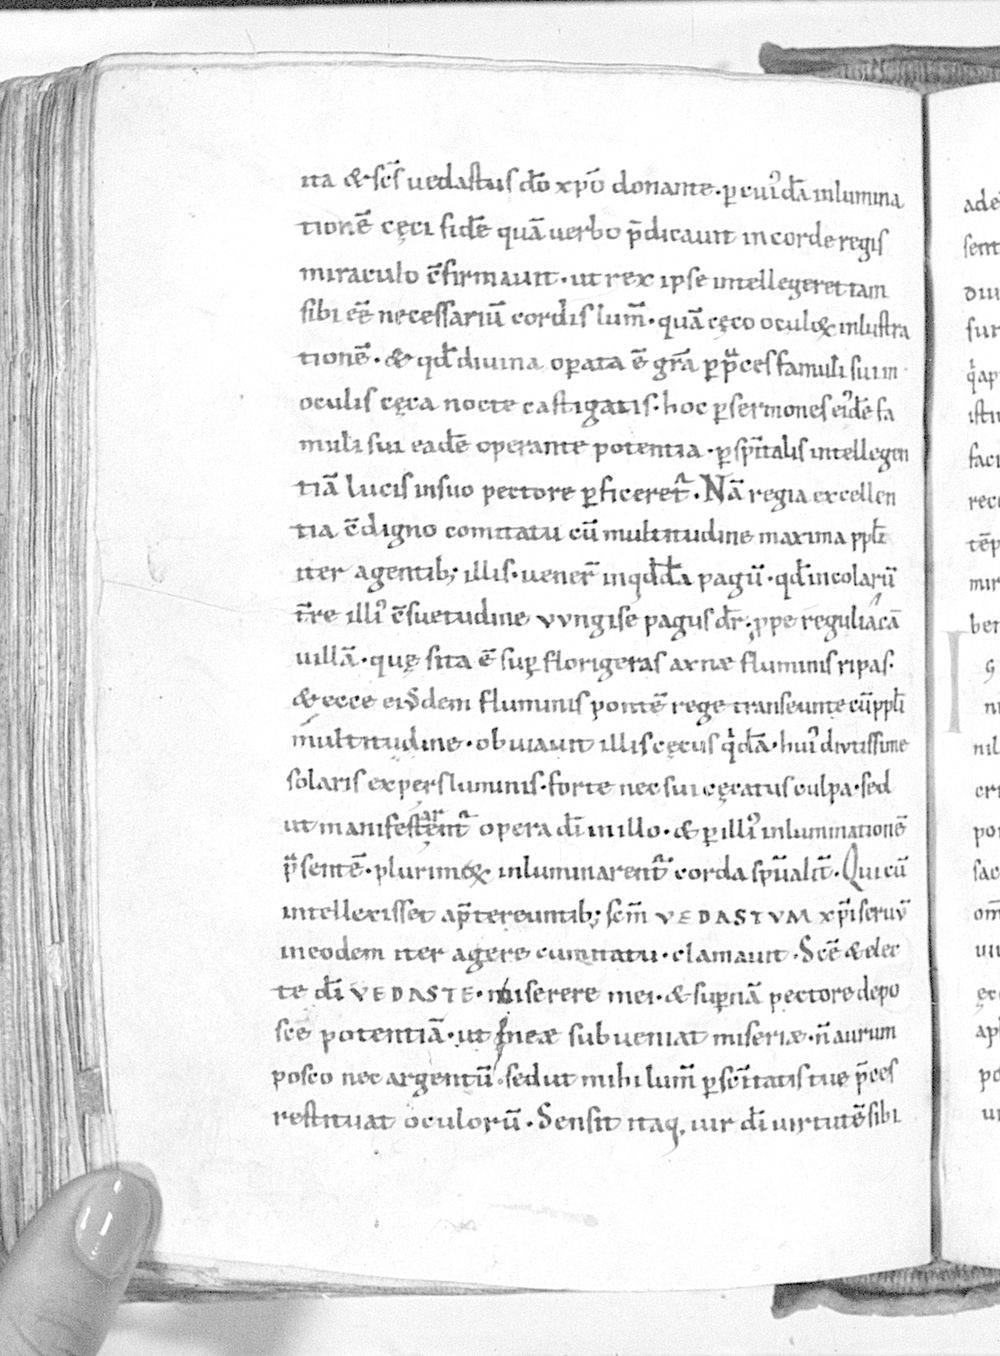 ita & scs̄ uedastus dō xp̄o donante · ꝑ cuiꝰdā inlumina
tionē cęci fidē quā uerbo p̄dicauit in corde regis
miraculo c̄firmauit · ut rex ipse intellegeret tam
sibi eē necessariū cordis lum̄ · quā cęco oculoꝝ inlustra
tionē · & qđ diuina oꝑata ē gr̄a ꝑ p̄ces famuli sui in
oculis cęca nocte castigatis · hoc ꝑ sermones eiꝰdē fa
muli sui eadē operante potentia · ꝑ sp̄italis intellegen
tiā lucis in suo pectore ꝑficeret᷑ · Nā regia excellen
tia c̄digno comitatu cū multitudine maxima ppłi
iter agentib; illis · uener̄ in qđdā pagū · qđ incolarū
t̄re illiꝰ c̄suetudine vvngise pagus dr̄ · ꝓpe reguliacā
uillā · quę sita ē suꝑ florigeras axnæ fluminis ripas ·
& ecce eiꝰdem fluminis pontē rege transeunte cū ppłi
multitudine · obuiauit illis cęcus qⁱdā · huiꝰ diutissime
solaris expers luminis · forte nec sui cęcatus culpa · sed
ut manifestarent᷑ opera dī in illo · & ꝑ illiꝰ inluminationē
p̄sentē · plurimoꝝ inluminarent᷑ corda sp̄ualit̄ · Qui cū
intellexisset ap̄tereuntib; scm̄ VEDASTVM xp̄i seruū
in eodem iter agere cumitatu · clamauit · Scē & elec
te dī VEDASTE · miserere mei · & suꝑnā pectore depo
sce potentiā · ut meæ subueniat miseriæ · n̄ aurum
posco nec argentū · sed ut mihi lum̄ ꝑ sc̄itatis tue p̄ces
restituat oculorū · Sensit itaq, uir dī uirtutē sibi